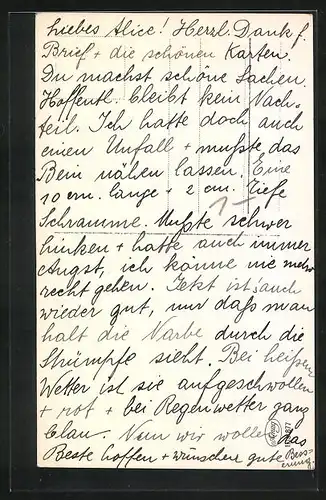 Liebes Alice! Herzl. Dank f.
Brief + die schönen Karten.
Du machst schöne Sachen.
Hoffentl. bleibt kein Nach-
teil. Ich hatte doch auch
einen Unfall + mußte das
Bein nähen lassen. Eine
10 cm. lange + 2 cm. tiefe
Schramme. Mußte schwer
hinken + hatte auch immer
Angst, ich könne nie mehr
recht gehen. Jetzt ist's auch
wieder gut, nur daß man
halt die Narbe durch die
Strümpfe sieht. Bei heißem
Wetter ist sie aufgeschwollen
+ rot + bei Regenwetter ganz
blau. Nun wir wollen das
Beste hoffen + wünschen gute Bess-
erung.